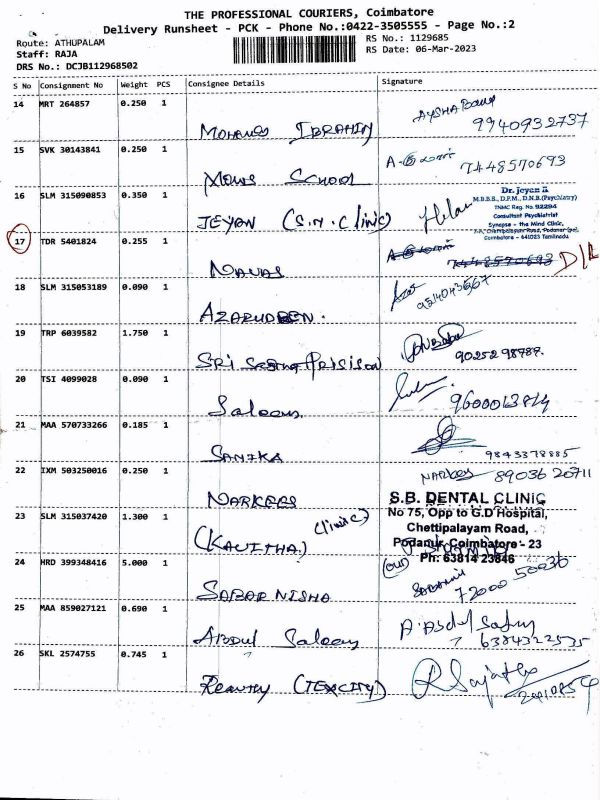 THE PROFESSIONAL COURIERS, Coimbatore
Delivery Runsheet - PCK - Phone No.:0422-3505555 - Page No.:2
Route: ATHUPALAM
RS No.: 1129685
Staff: RAJA
RS Date: 06-Mar-2023
DRS No.: DCJB112968502
S No Consignment No Weight PCS Consignee Details Signature
14 MRT 264857 0.250 1
9940932737
MOHAMED IBRAHIM
15 SVK 30143841 0.250 1
7448570693
SCHOOL
16 SLM 315090853 0.350 1
Dr. Jeyan
M.B.B.S., D.P.M., D.N.B.(Psychiatry)
TNMC Reg. No. 92294
Consultant Psychiatrist
Synapse - the Mind Clinic,
Coimbatore - 641023 Tamilnadu
JEYAN (S.M. Clinic)
17 TDR 5401824 0.255 1
7448570693
NAVAS
18 SLM 315053189 0.090 1
AZARUDEEN.
19 TRP 6039582 1.750 1
9025298787.
SRI
20 TSI 4099028 0.090 1
Saleem
21 MAA 570733266 0.185 1
9843378885
SANIKA
22 IXM 503250016 0.250 1
8903620711
NARKEES
S.B. DENTAL CLINIC
No 75, Opp to G.D Hospital,
Chettipalayam Road,
Podanur, Coimbatore - 23
Ph: 63814 23846
23 SLM 315037420 1.300 1
(KAVITHA) Clinic)
24 HRD 399348416 5.000 1
72000 50036
SABAR NISHA
25 MAA 859027121 0.690 1
A. Abdul
6384322535
ABDUL Saleem
26 SKL 2574755 0.745 1
(TEXCITY)